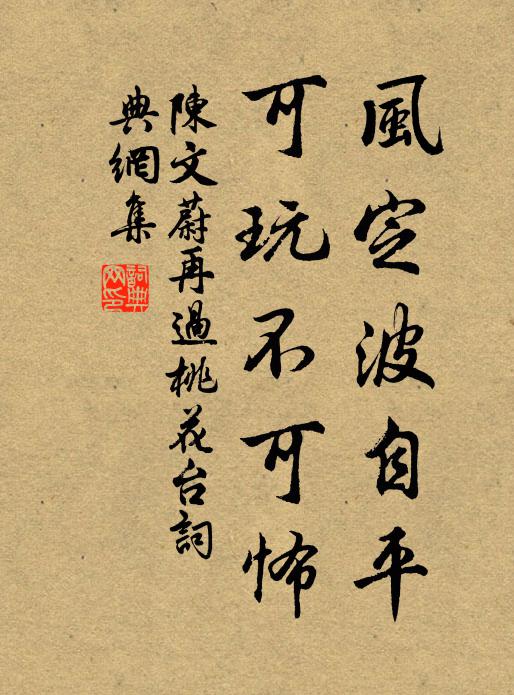 風定波自平
可玩不可怖
陳文蔚再過桃花台詞
典網集
詞典
网印